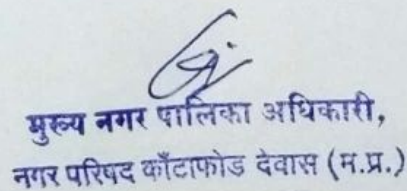 मुख्य नगर पालिका अधिकारी,
नगर परिषद काँटाफोड देवास (म.प्र.)